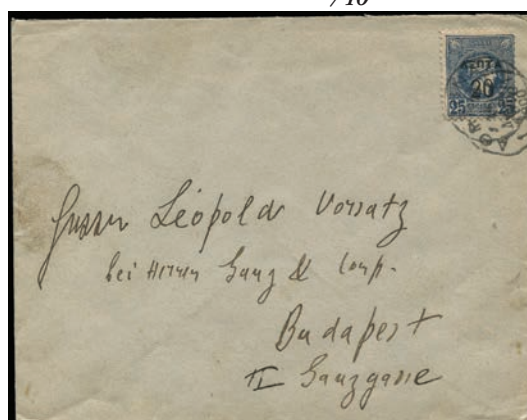 /10
20
25 25
Herrn Léopold Vorsatz
bei Herrn Ganz & Comp.
Budapest
II Ganzgasse